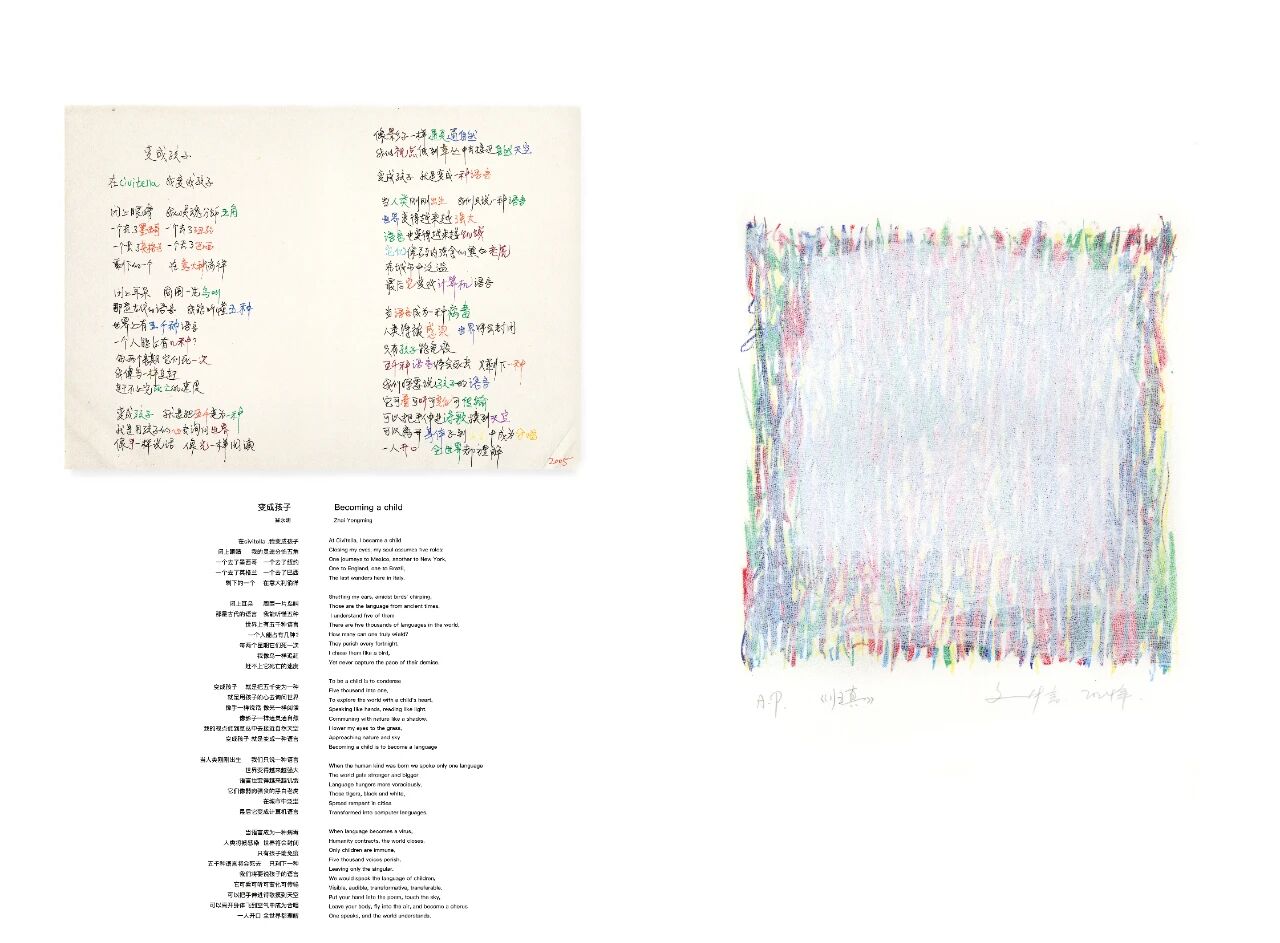 变成孩子
在Civitella 我变成孩子
闭上眼睛 我的灵魂分饰五角
一个去了墨西哥 一个去了纽约
一个去了英格兰 一个去了巴西
剩下的一个 在意大利徜徉
闭上耳朵 周围一片鸟叫
那是古代的语言 我能听懂五种
世界上有五千种语言
一个人能占有几种?
每两个星期它们死一次
我像鸟一样追赶
赶不上它死亡的速度
变成孩子 就是把五千变为一种
就是用孩子的心去询问世界
像手一样说话 像光一样阅读
像影子一样遁灵遁自然
我的视点低到草丛中去接近自然天空
变成孩子 就是变成一种语言
当人类刚刚出生 我们只说一种语言
世界变得越来越强大
语言也变得越来越饥饿
它们像弱的强食的黑白老虎
在城市中泛滥
最后它变成计算机语言
当语言成为一种病毒
人类将被感染 世界将会封闭
只有孩子能免疫
五千种语言将会死去 只剩下一种
我们将要说孩子的语言
它可看可听可变化可传输
可以把手伸进诗歌摸到天空
可以离开身体飞到空气中成为合唱
一人开口 全世界都理解
2005
变成孩子
翟永明
在civitella ,我变成孩子
闭上眼睛 我的灵魂分饰五角
一个去了墨西哥 一个去了纽约
一个去了英格兰 一个去了巴西
剩下的一个 在意大利徜徉
闭上耳朵 周围一片鸟叫
那是古代的语言 我能听懂五种
世界上有五千种语言
一个人能占有几种?
每两个星期它们死一次
我像鸟一样追赶
赶不上它死亡的速度
变成孩子 就是把五千变为一种
就是用孩子的心去询问世界
像手一样说话 像光一样阅读
像影子一样通灵通自然
我的视点低到草丛中去接近自然天空
变成孩子 就是变成一种语言
当人类刚刚出生 我们只说一种语言
世界变得越来越强大
语言也变得越来越饥饿
它们像弱肉强食的黑白老虎
在城市中泛滥
最后它变成计算机语言
当语言成为一种病毒
人类将被感染 世界将会封闭
只有孩子能免疫
五千种语言将会死去 只剩下一种
我们将要说孩子的语言
它可看可听可变化可传输
可以把手伸进诗歌摸到天空
可以离开身体飞到空气中成为合唱
一人开口 全世界都理解
Becoming a child
Zhai Yongming
At Civitella, I became a child
Closing my eyes, my soul assumes five roles:
One journeys to Mexico, another to New York,
One to England, one to Brazil,
The last wanders here in Italy.
Shutting my ears, amidst birds' chirping,
Those are the language from ancient times.
I understand five of them
There are five thousands of languages in the world,
How many can one truly wield?
They perish every fortnight.
I chase them like a bird,
Yet never capture the pace of their demise.
To be a child is to condense
Five thousand into one,
To explore the world with a child's heart,
Speaking like hands, reading like light.
Communing with nature like a shadow.
I lower my eyes to the grass,
Approaching nature and sky
Becoming a child is to become a language
When the human kind was born we spoke only one language
The world gets stronger and bigger
Language hungers more voraciously,
These tigers, black and white,
Spread rampant in cities
Transformed into computer languages
When language becomes a virus,
Humanity contracts, the world closes,
Only children are immune,
Five thousand voices perish,
Leaving only the singular.
We would speak the language of children,
Visible, audible, transformative, transferable.
Put your hand into the poem, touch the sky,
Leave your body, fly into the air, and become a chorus
One speaks, and the world understands.
A.P.
2024年